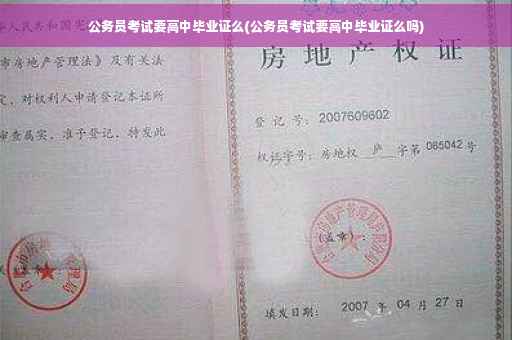 公务员考试要高中毕业证么(公务员考试要高中毕业证么吗)
人民共和国宪
市房地产管理法》及有关法
定，对权利人申请登记本证所
审查属实，准予登记，特发此
房地产权证
登记号：2007609602
权证字号：房地权 庐 字第 085042 号
(盖章)：
填发日期：2007 年 04 月 27 日